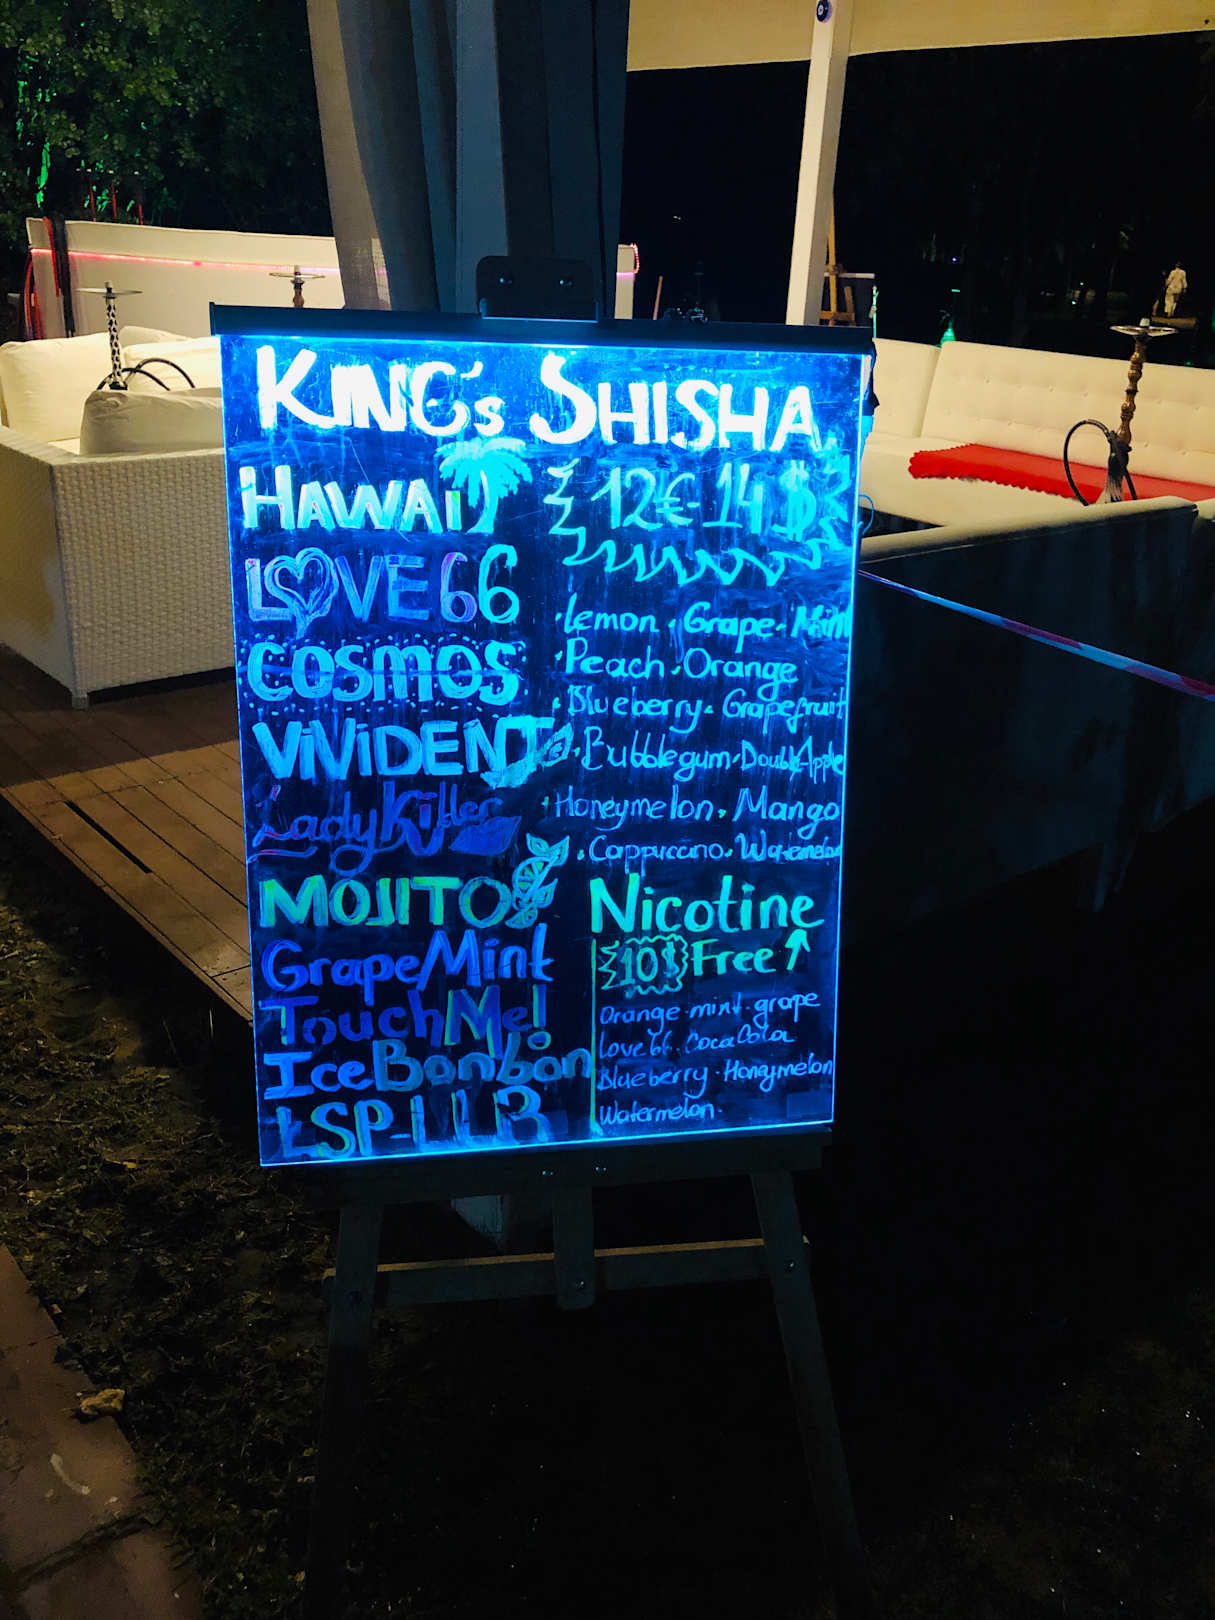 KING's SHISHA
HAWAII
LOVE66
COSMOS
VIVIDENT
LadyKiller
MOJITO
Grape/Mint
TouchMe!
IceBonbon
12€-14$
Lemon · Grape-Mint
· Peach · Orange
· Blueberry · Grapefruit
· Bubblegum · Double Apple
· Honeymelon · Mango
· Cappuccino · Watermelon
Nicotine
10$ Free ↑
Orange-mint-grape
Love 66 · CocaCola
Blueberry · Honeymelon
Watermelon ·